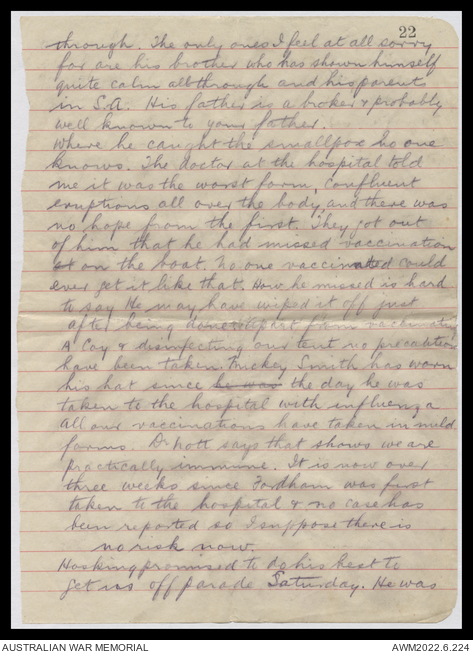 22
through. The only ones I feel at all sorry
for are his brother who has shown himself
quite calm all through and his parents
in S.A. His father is a broker & probably
well known to your father.
Where he caught the smallpox no one
knows. The doctor at the hospital told
me it was the worst form, confluent
eruptions all over the body and there was
no hope from the first. They got out
of him that he had missed vaccination
at on the boat. No one vaccinated could
ever get it like that. How he missed is hard
to say He may have wiped it off just
after being apart from vaccinating
A Coy & disinfecting our tent no precautions
have been taken. Mickey Smith has worn
his hat since he was the day he was
taken to the hospital with influenza
All our vaccinations have taken in mild
forms Dr Nott says that shows we are
practically immune. It is now over
three weeks since Fordham was first
taken to the hospital & no case has
been reported so I suppose there is
no risk now.
Hosking promised to do his best to
get us off parade Saturday. He was
AUSTRALIAN WAR MEMORIAL
AWM2022.6.224